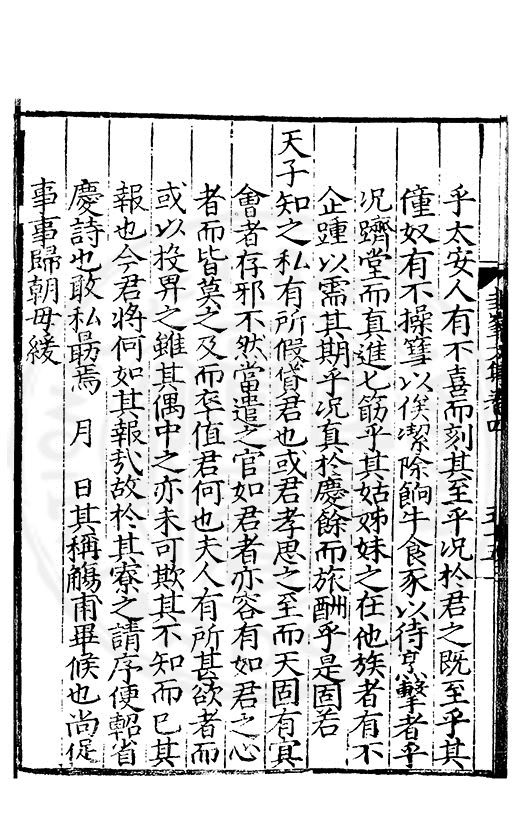 乎太安人有不喜而刻其至乎况於君之既至乎其
僮奴有不操篲以俟潔除餉牛食豕以待烹擊者乎
况躋堂而直進匕筯乎其姑姊妹之在他族者有不
企踵以需其期乎况真於慶餘而旅酬乎是固若
天子知之私有所假貸君也或君孝思之至而天固有㝠
會者存邪不然當遣之官如君者亦容有如君之心
者而皆莫之及而卒值君何也夫人有所甚欲者而
或以投畀之雖其偶中之亦未可欺其不知而已其
報也今君將何如其報哉故於其寮之請序便軺省
慶詩也敢私勗焉 月 日其稱觴甫畢候也尚促
事事歸朝毋緩